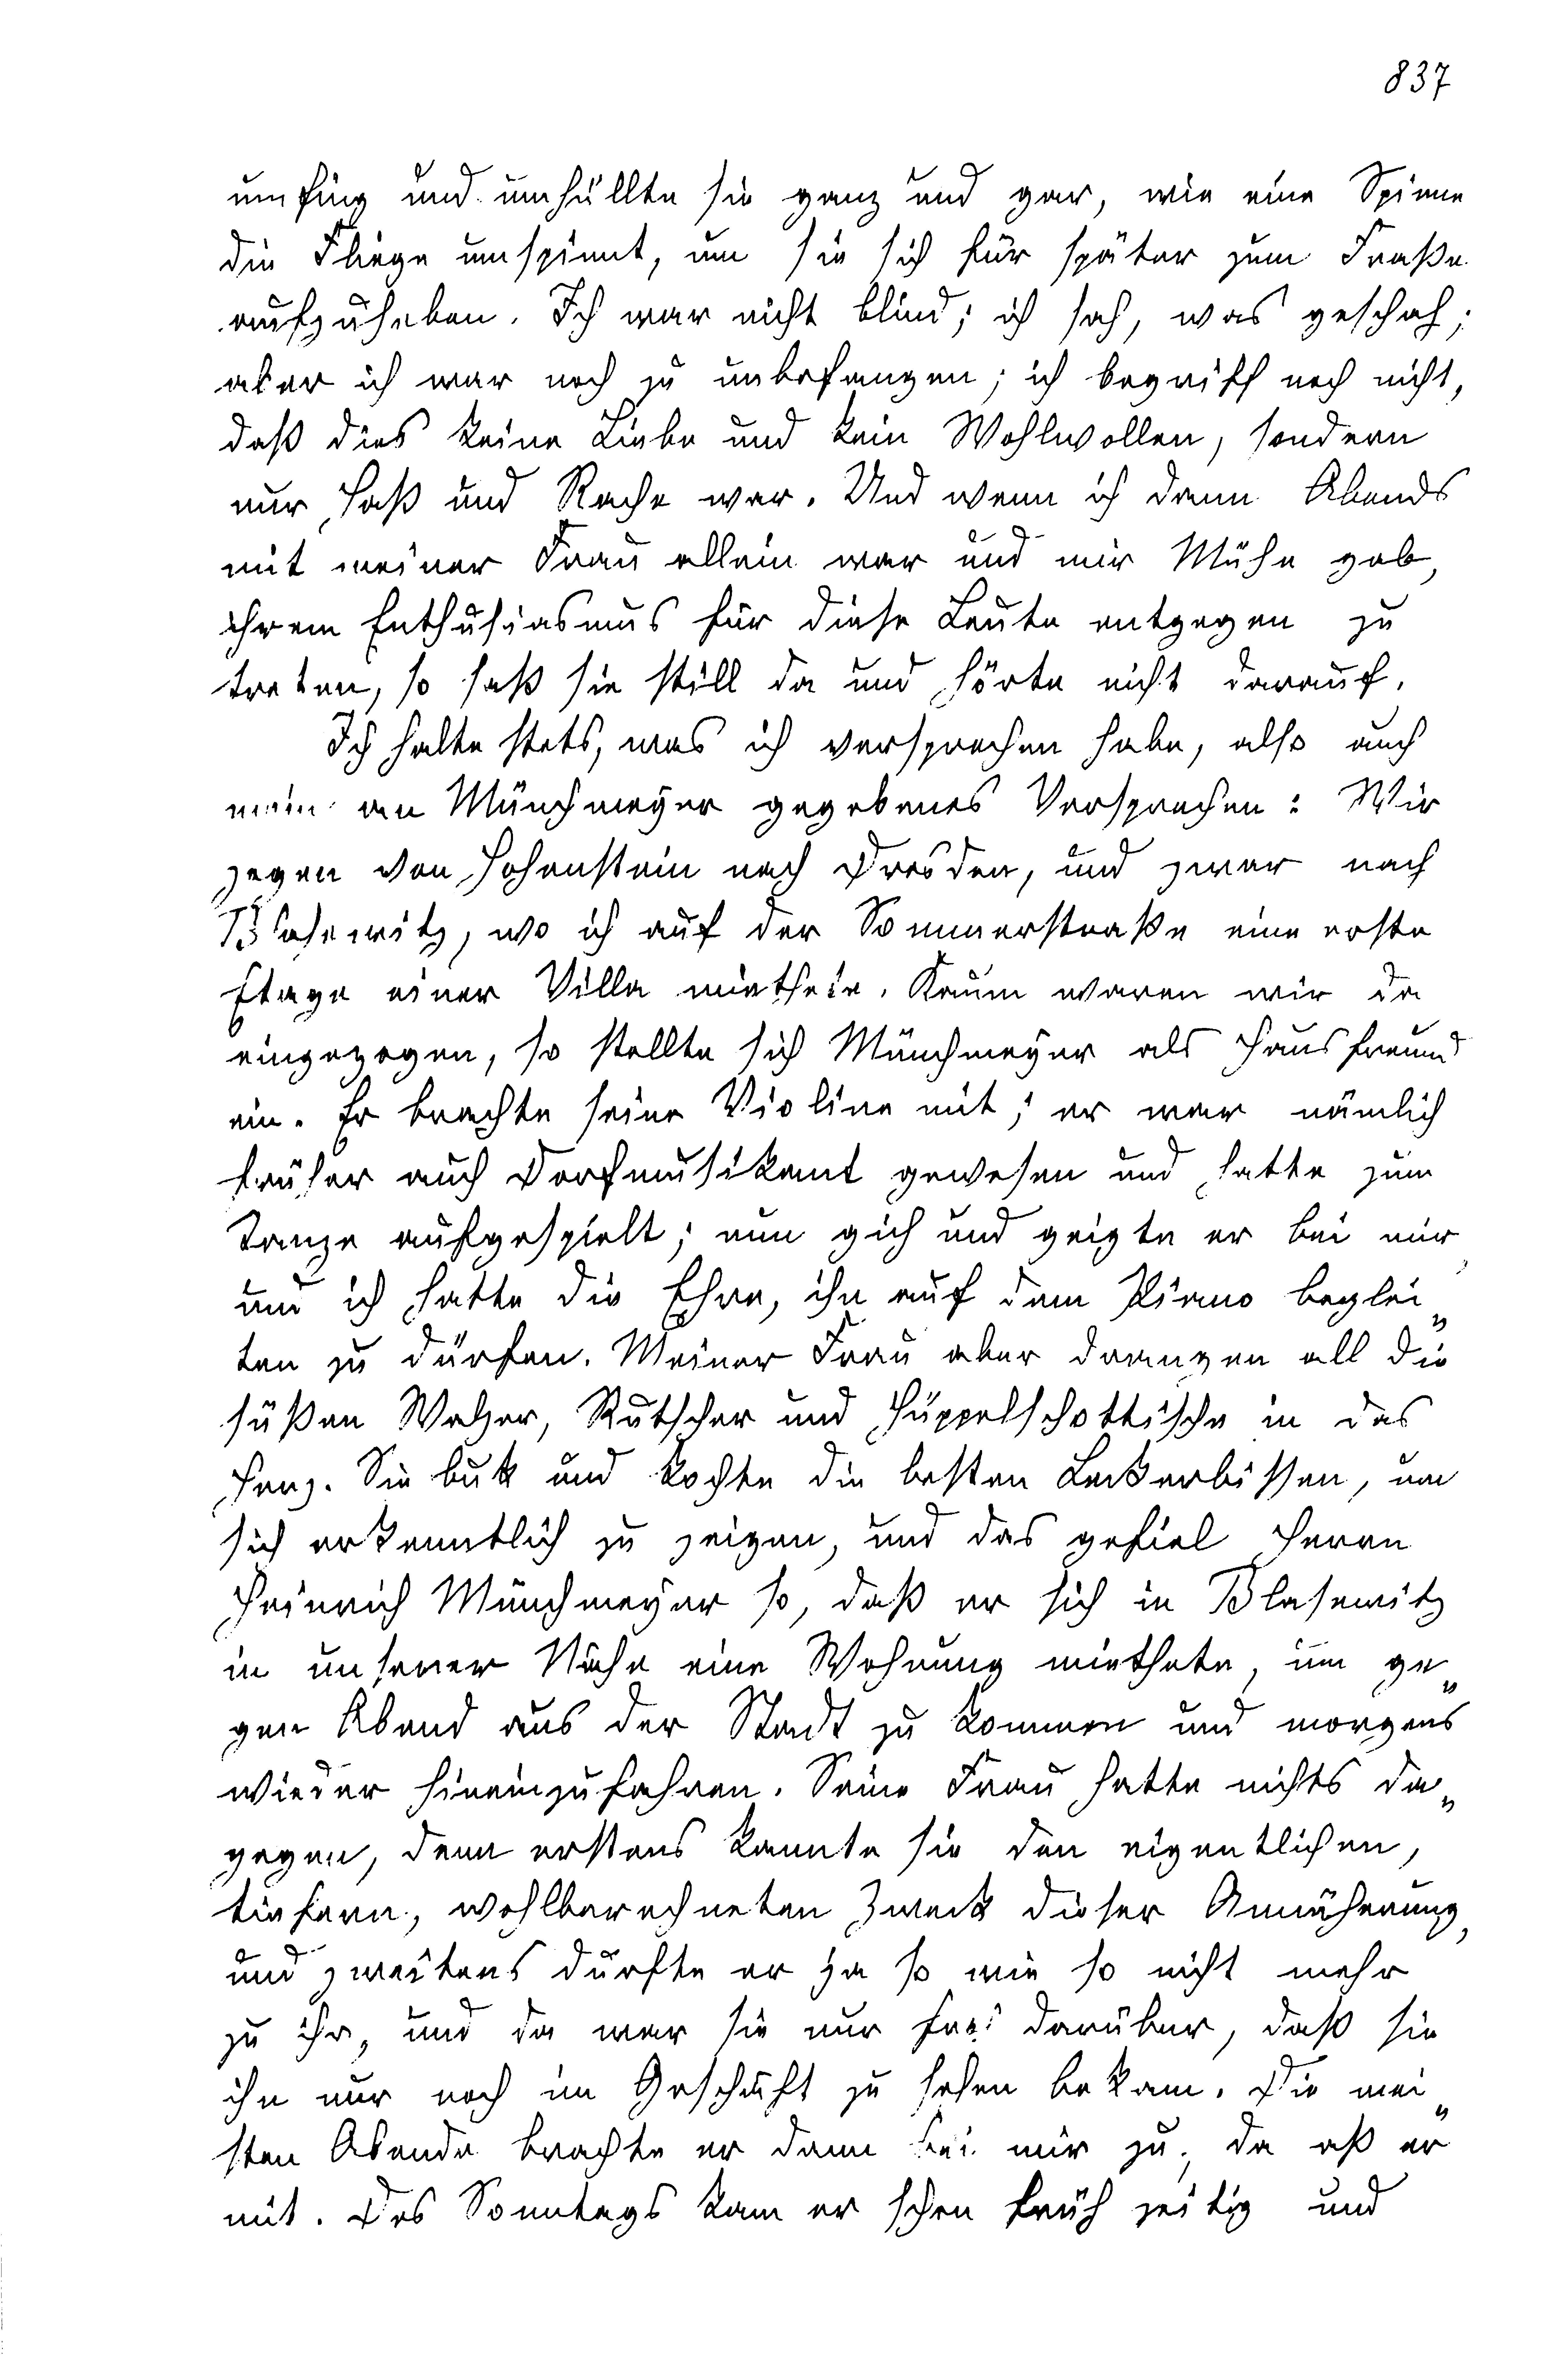 837
umfing und umhüllte sie ganz und gar, wie eine Spinne
die Fliege umspinnt, um sie sich für später zum Fraße
aufzuheben. Ich war nicht blind; ich sah, was geschah;
aber ich war noch zu unbefangen; ich begriff noch nicht,
daß dies keine Liebe und kein Wohlwollen, sondern
nur Haß und Rache war. Und wenn ich dann Abends
mit meiner Frau allein war und mir Mühe gab,
ihrem Enthusiasmus für diese Leute entgegen zu
treten, so saß sie still da und hörte nicht darauf.
Ich halte stets, was ich versprochen habe, also auch
mein an Münchmeyer gegebenes Versprechen: Wir
zogen von Hohenstein nach Dresden, und zwar nach
Blasewitz, wo ich auf der Sommerstraße eine erste
Etage einer Villa miethete. Kaum waren wir da
eingezogen, so stellte sich Münchmeyer als Hausfreund
ein. Er brachte seine Violine mit; er war nämlich
früher auch Dorfmusikant gewesen und hatte zum
Tanze aufgespielt; nun gich und geigte er bei mir,
und ich hatte die Ehre, ihn auf dem Piano beglei„
ten zu dürfen. Meiner Frau aber drangen all die
süßen Walzer, Rutscher und Hüppelschottische in das
Herz. Sie buk und kochte die besten Leckerbissen, um
sich erkenntlich zu zeigen, und das gefiel Herrn
Heinrich Münchmeyer so, daß er sich in Blasewitz
in unserer Nähe eine Wohnung miethete, um ge„
gen Abend aus der Stadt zu kommen und morgens
wieder hineinzufahren. Seine Frau hatte nichts da„
gegen, denn erstens kannte sie den eigentlichen,
tiefern, wohlberechneten Zweck dieser Annäherung,
und zweitens durfte er ja so wie so nicht mehr
zu ihr, und da war sie nur froh darüber, daß sie
ihn nur noch im Geschäft zu sehen bekam. Die mei„
sten Abende brachte er dann bei mir zu; da aß er
mit. Des Sonntags kam er schon früh zeitig und